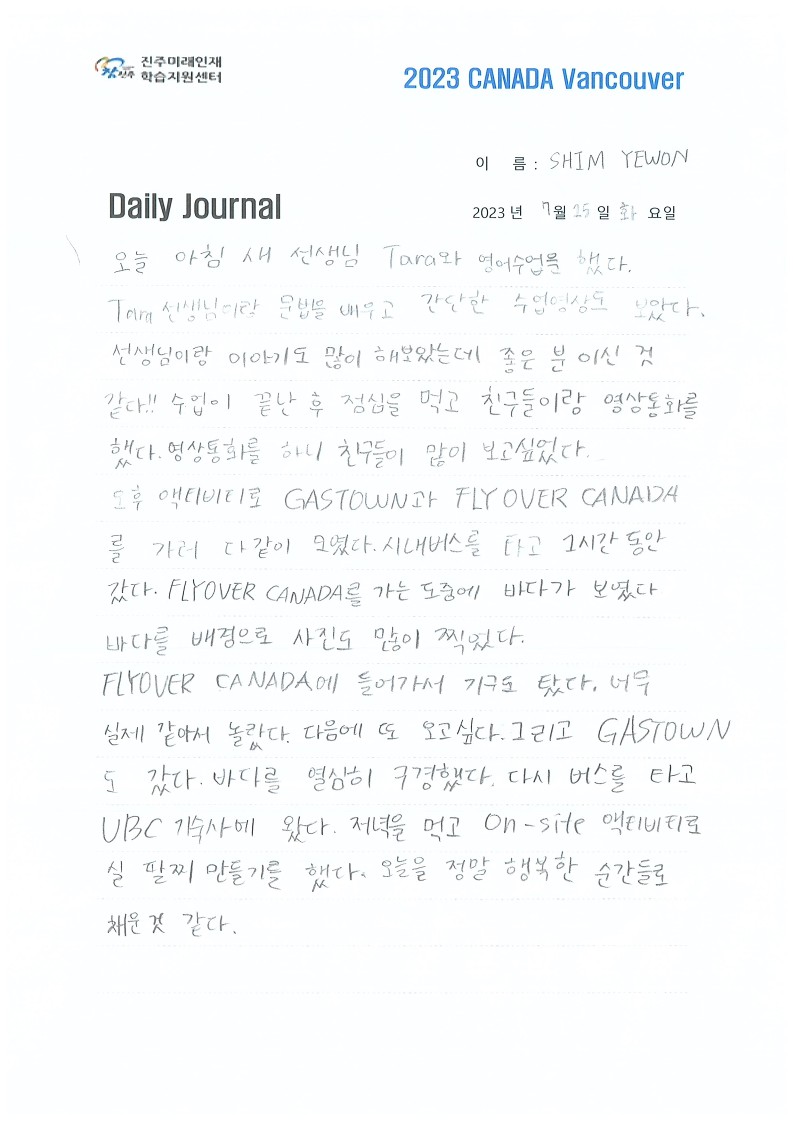 진주미래인재
학습지원센터
2023 CANADA Vancouver
이 름 : SHIM YEWON
Daily Journal
2023 년 7월 25 일 화 요일
오늘 아침 새 선생님 Tara와 영어수업을 했다.
Tara 선생님이랑 문법을 배우고 간단한 수업영상도 보았다.
선생님이랑 이야기도 많이 해보았는데 좋은 분 이신 것
같다!! 수업이 끝난 후 점심을 먹고 친구들이랑 영상통화를
했다. 영상통화를 하니 친구들이 많이 보고싶었다.
오후 액티비티로 GASTOWN과 FLYOVER CANADA
를 가러 다같이 모였다. 시내버스를 타고 1시간 동안
갔다. FLYOVER CANADA를 가는 도중에 바다가 보였다
바다를 배경으로 사진도 많이 찍었다.
FLYOVER CANADA에 들어가서 기구도 탔다. 너무
실제 같아서 놀랐다. 다음에 또 오고싶다. 그리고 GASTOWN
도 갔다. 바다를 열심히 구경했다. 다시 버스를 타고
UBC 기숙사에 왔다. 저녁을 먹고 On-site 액티비티로
실 팔찌 만들기를 했다. 오늘을 정말 행복한 순간들로
채운것 같다.